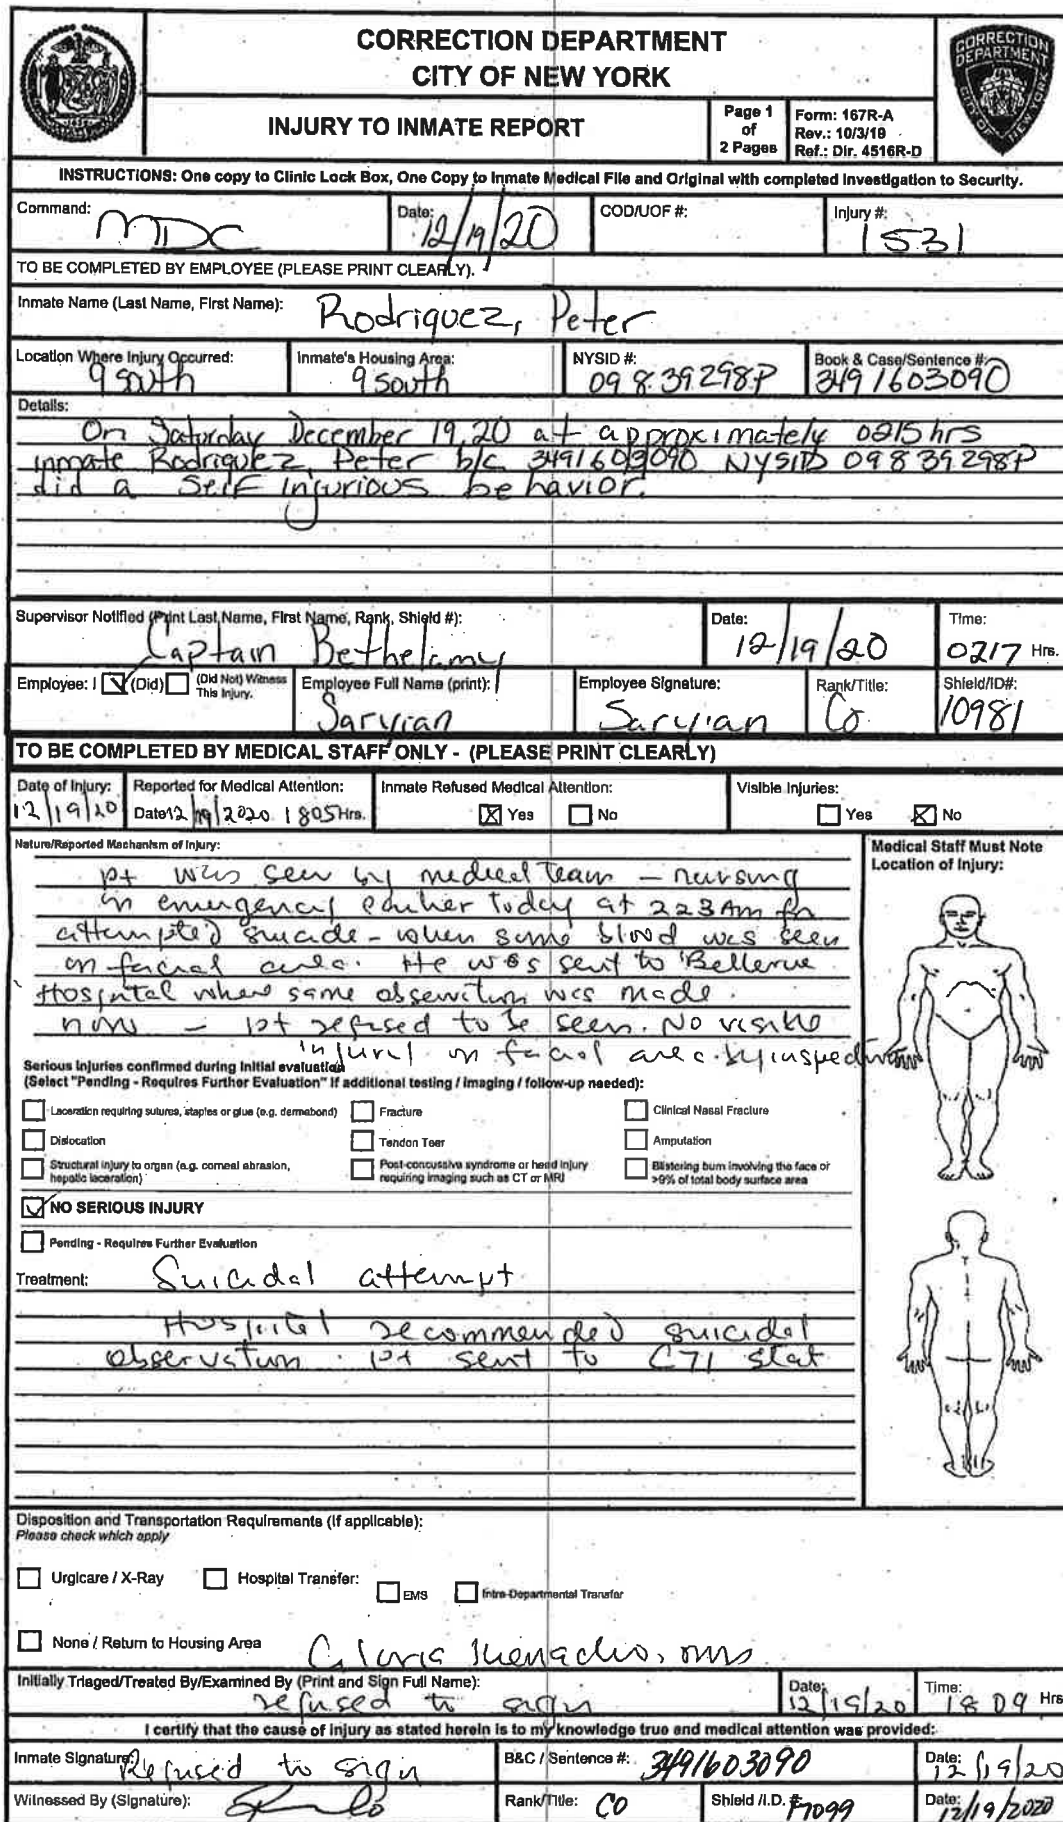 CORRECTION DEPARTMENT
CITY OF NEW YORK
CORRECTION
DEPARTMENT
CITY OF NEW YORK
INJURY TO INMATE REPORT
Page 1
of
2 Pages
Form: 167R-A
Rev.: 10/3/19
Ref.: Dir. 4516R-D
INSTRUCTIONS: One copy to Clinic Lock Box, One Copy to Inmate Medical File and Original with completed Investigation to Security.
Command: MDC Date: 12/19/20 COD/UOF #: Injury #: 1531
TO BE COMPLETED BY EMPLOYEE (PLEASE PRINT CLEARLY).
Inmate Name (Last Name, First Name): Rodriquez, Peter
Location Where Injury Occurred: Inmate's Housing Area: NYSID #: Book & Case/Sentence #:
9 south 9 south 09839298P 3491603090
Details:
On Saturday December 19, 20 at approximately 0215 hrs
inmate Rodriguez, Peter b/c 3491603090 NYSID 09839298P
did a self injurious behavior.
Supervisor Notified (Print Last Name, First Name, Rank, Shield #): Date: Time:
Captain Bethelamy 12/19/20 0217 Hrs.
Employee: I (Did) (Did Not) Witness This Injury. Employee Full Name (print): Employee Signature: Rank/Title: Shield/ID#:
Saryian Saryian Co 10981
TO BE COMPLETED BY MEDICAL STAFF ONLY - (PLEASE PRINT CLEARLY)
Date of Injury: Reported for Medical Attention: Inmate Refused Medical Attention: Visible Injuries:
12/19/20 Date 12/19/2020 1805 Hrs. Yes No Yes No
Nature/Reported Mechanism of Injury: Medical Staff Must Note
Location of Injury:
pt was seen by medical team - nursing
in emergency earlier today at 223 Am for
attempted suicide - when some blood was seen
on facial area. He was sent to Bellevue
Hospital where same observation was made.
now - pt refused to be seen. No visible
injury on facial area by inspection
Serious Injuries confirmed during initial evaluation
(Select "Pending - Requires Further Evaluation" if additional testing / imaging / follow-up needed):
Laceration requiring sutures, staples or glue (e.g. dermabond) Fracture Clinical Nasal Fracture
Dislocation Tendon Tear Amputation
Structural injury to organ (e.g. corneal abrasion, hepatic laceration) Post-concussive syndrome or head injury requiring imaging such as CT or MRI Blistering burn involving the face or >9% of total body surface area
NO SERIOUS INJURY
Pending - Requires Further Evaluation
Treatment: Suicidal attempt
Hospital recommended suicidal
observation. pt sent to C71 stat
Disposition and Transportation Requirements (if applicable):
Please check which apply
Urgicare / X-Ray Hospital Transfer: EMS Intra-Departmental Transfer
None / Return to Housing Area
Initially Triaged/Treated By/Examined By (Print and Sign Full Name): Date: Time:
refused to sign 12/19/20 1809 Hrs
I certify that the cause of injury as stated herein is to my knowledge true and medical attention was provided:
Inmate Signature: Refused to sign B&C / Sentence #: 3491603090 Date: 12/19/20
Witnessed By (Signature): Rank/Title: CO Shield /I.D. #: 17099 Date: 12/19/2020